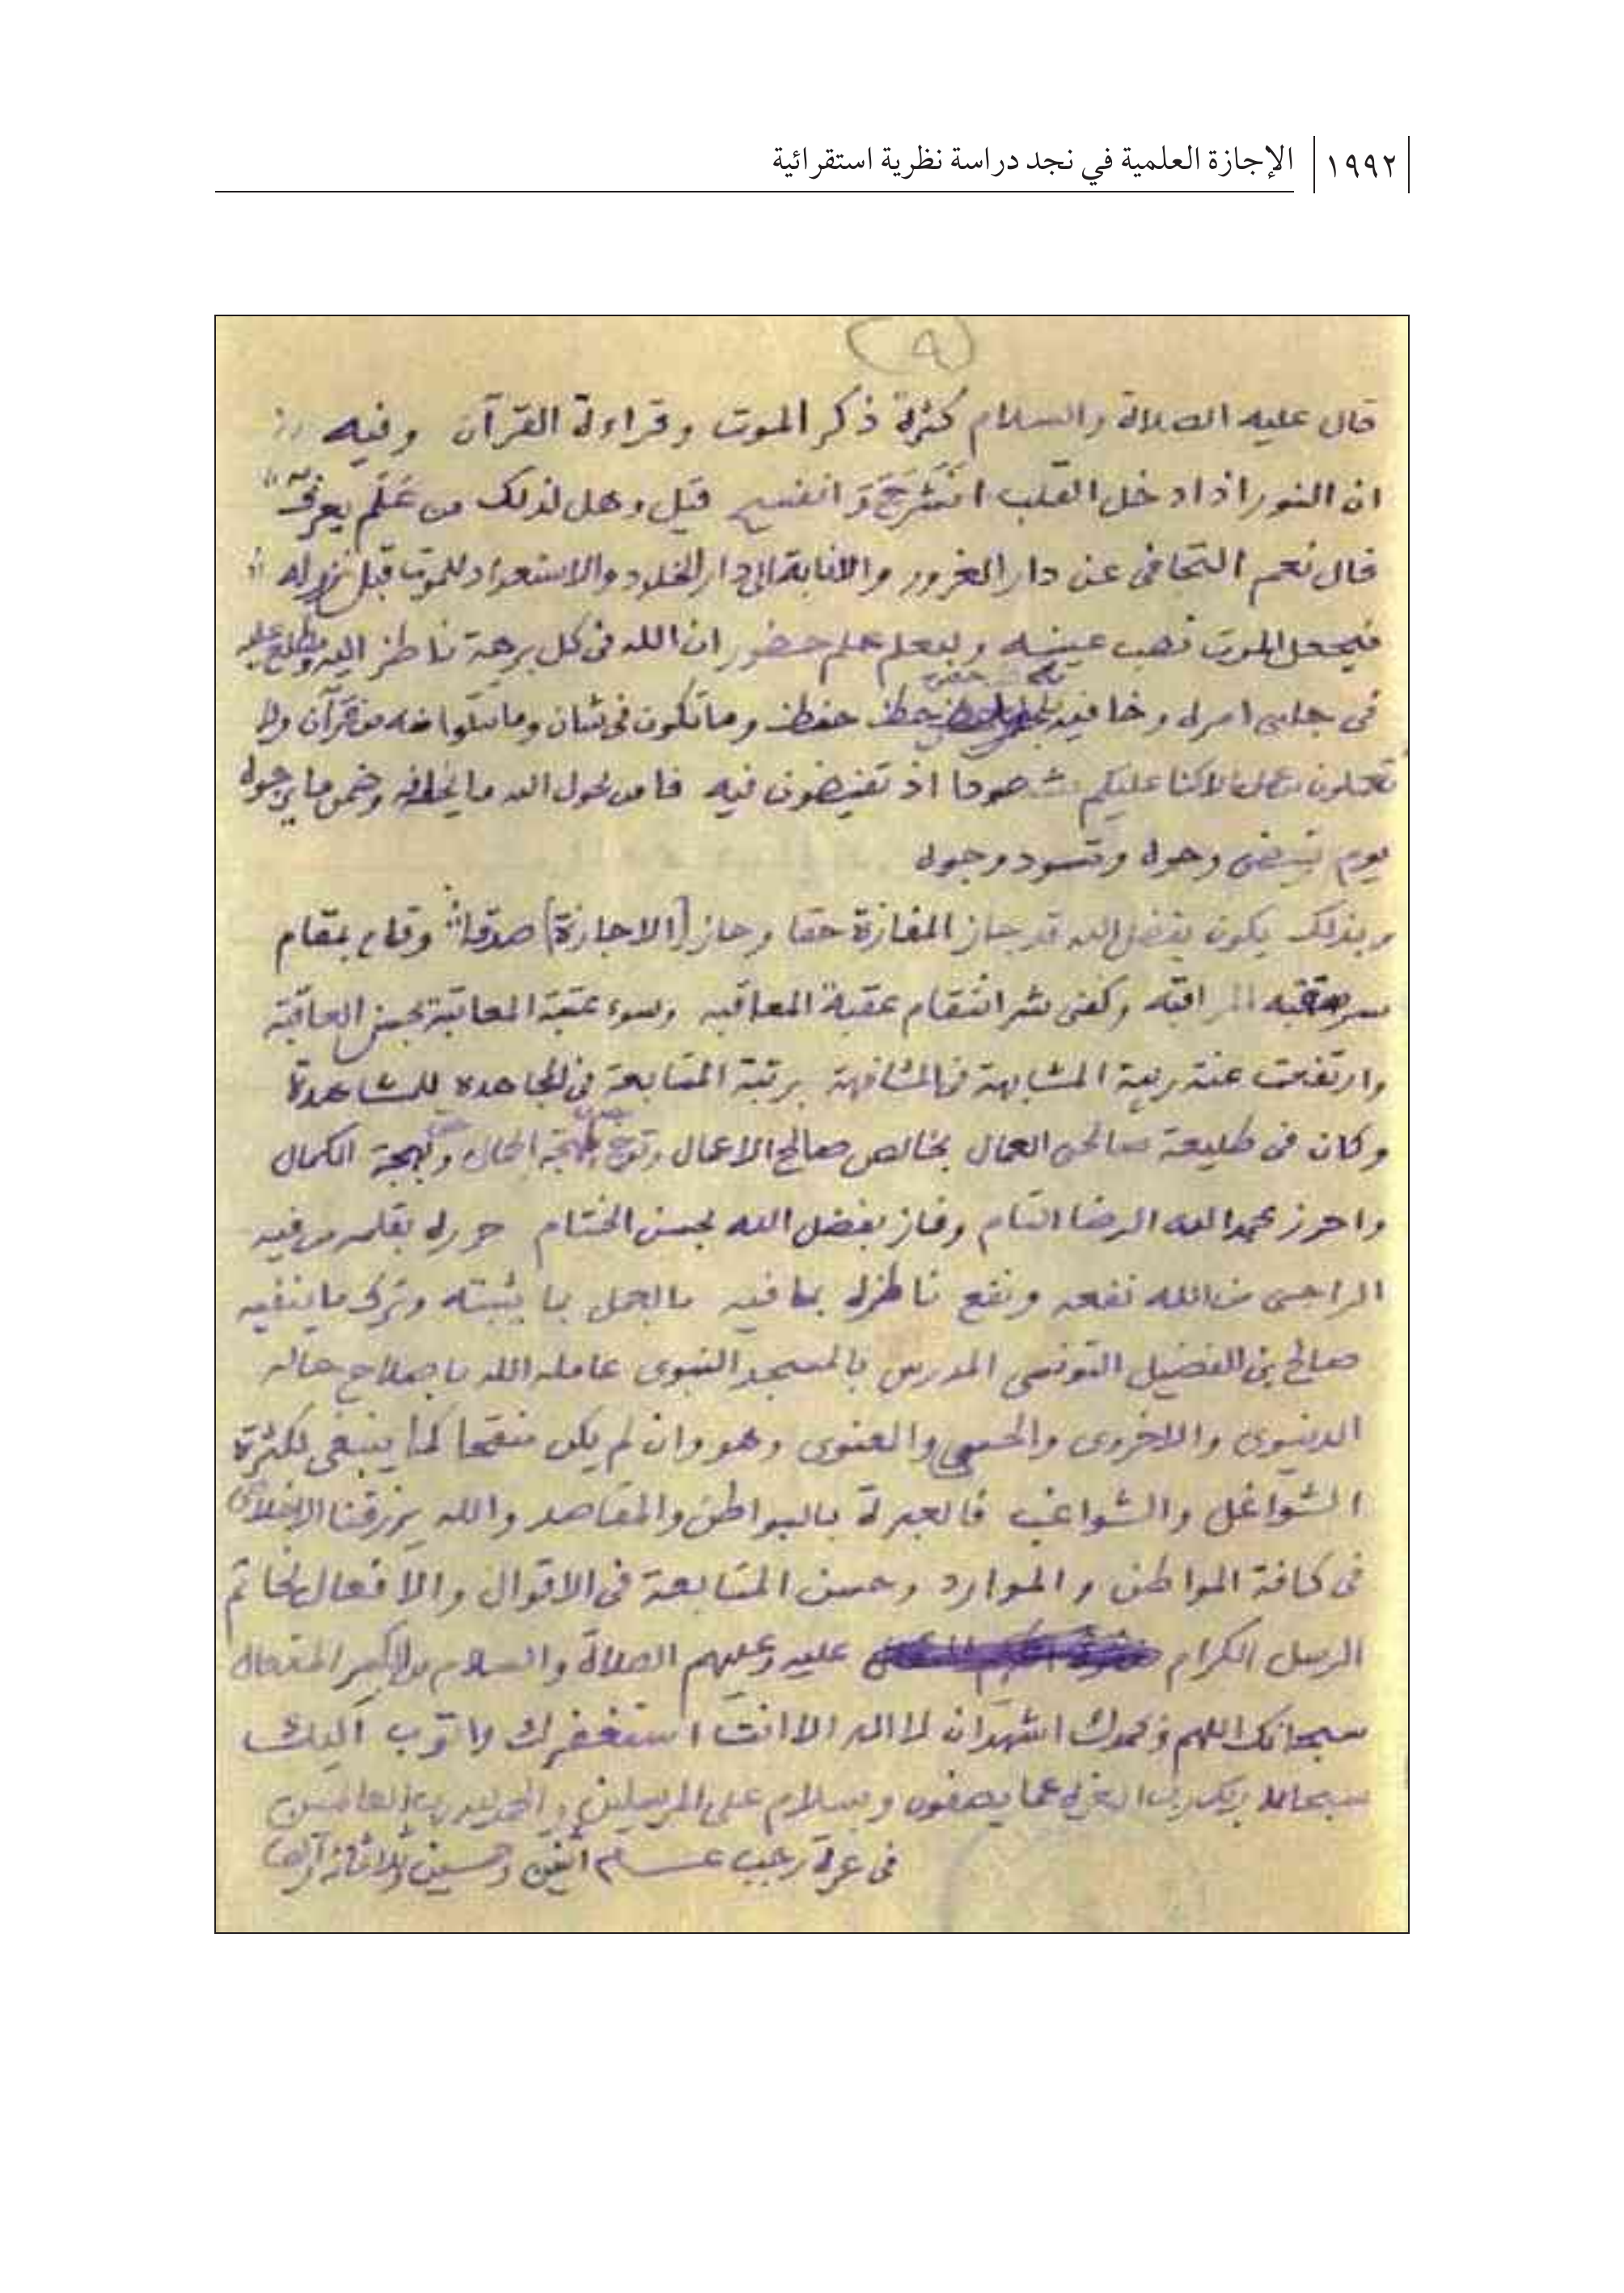 ١٩٩٢ الإجازة العلمية في نجد دراسة نظرية استقرائية
(٩)
قال عليه الصلاة والسلام كثرة ذكر الموت وقراءة القرآن وفيه
ان النور اذا دخل القلب انشرح وانفسح قيل وهل لذلك من علم يعرف
قال نعم التجافى عن دار الغرور والانابة الى دار الخلود والاستعداد للموت قبل نزوله
فيجعل الموت نصب عينيه وليعلم علم حضور ان الله فى كل برهة ناظر اليه ومطلع عليه
فى جلى امره وخافيه حفظ وما تكون فى شان وما تتلوا منه من قرآن ولا
تعملون من عمل الا كنا عليكم شهودا اذ تفيضون فيه
يوم تبيض وجوه وتسود وجوه
وبذلك يكون بفضل الله قد جاز المفازة حقا وحاز [الاجازة] صدقا وقام بمقام
المراقبه وكفى شر انتقام عقبة المعاقبه وسوء عقبة المعاتبة بحسن العاقبة
وارتفعت عنه المشابهة فى المشافهة برتبة المتابعة فى المجاهده للمشاهدة
وكان فى طليعة صالحى العمال بخالص صالح الاعمال الحال وبهجة الكمال
واحرز بحمد الله الرضا التام وفاز بفضل الله بحسن الختام حرره بقلمه
الراجى من الله نفعه ونفع ناظره بما فيه بالعمل بما يثبته وترك ما ينفيه
صالح بن الفضيل التونسى المدرس بالمسجد النبوى عامله الله باصلاح حاله
الدنيوى والاخروى والحسي والمعنوى وهو وان لم يكن منقحا كما ينبغى لكثرة
الشواغل والشواغب فالعبرة بالبواطن والمقاصد والله يرزقنا الاخلاص
فى كافة المواطن والموارد وحسن المتابعة فى الاقوال والافعال لخاتم
الرسل الكرام عليه وعليهم الصلاة والسلام من الكبير المتعال
سبحانك اللهم وبحمدك اشهد ان لا اله الا انت استغفرك واتوب اليك
سبحان ربك رب العزة عما يصفون وسلام على المرسلين والحمد لله رب العالمين
فى غرة رجب عام اثنين وخمسين وثلاثمائة والف